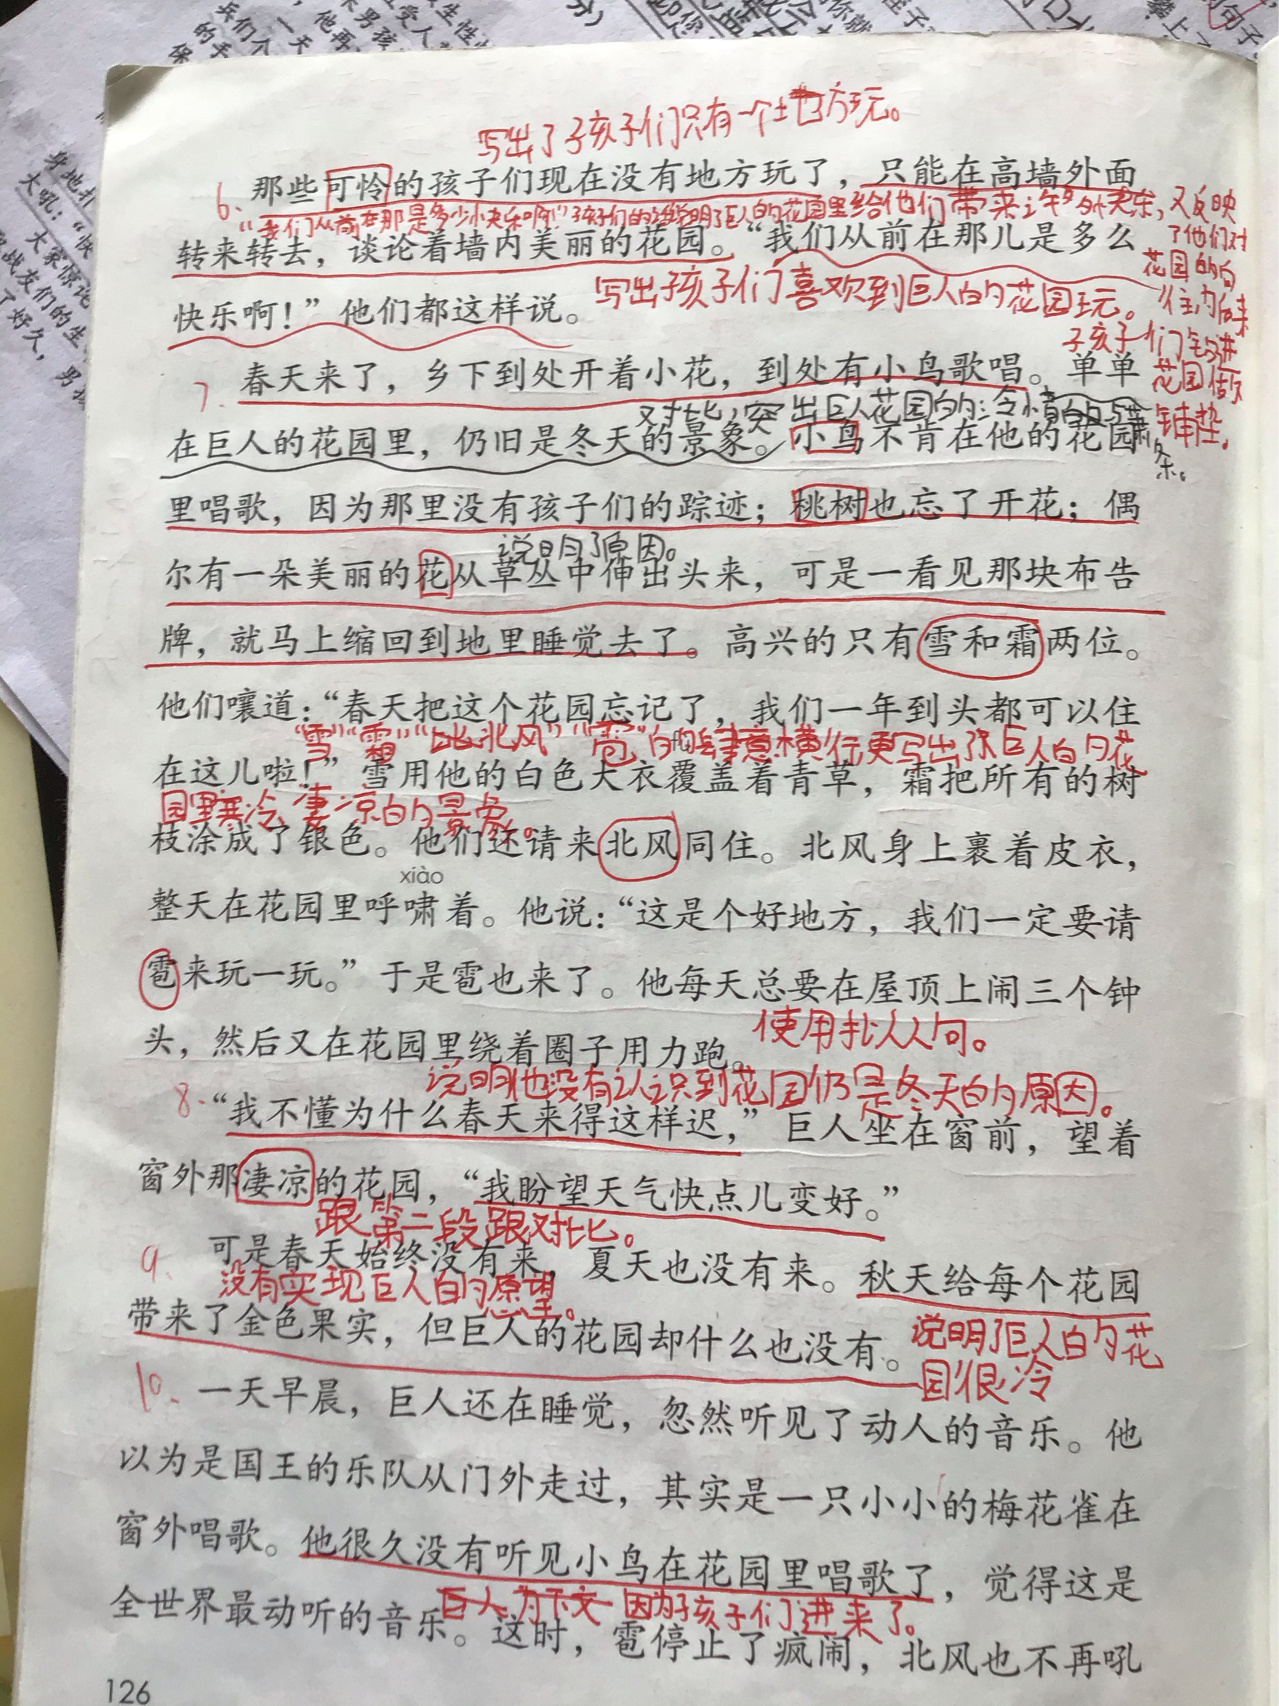 写出了子孩子们只有一个土地方玩。
6、那些可怜的孩子们现在没有地方玩了，只能在高墙外面
转来转去，谈论着墙内美丽的花园。“我们从前在那儿是多么
写出子孩子们喜欢到巨人的花园玩。
快乐啊！”他们都这样说。
7、春天来了，乡下到处开着小花，到处有小鸟歌唱。单单
在巨人的花园里，仍旧是冬天的景象。小鸟不肯在他的花园
里唱歌，因为那里没有孩子们的踪迹；桃树也忘了开花；偶
说明了原因。
尔有一朵美丽的花从草丛中伸出头来，可是一看见那块布告
牌，就马上缩回到地里睡觉去了。高兴的只有雪和霜两位。
他们嚷道：“春天把这个花园忘记了，我们一年到头都可以住
在这儿啦！”雪用他的白色大衣覆盖着青草，霜把所有的树
园里寒冷、凄凉的景象。
枝涂成了银色。他们还请来北风同住。北风身上裹着皮衣，
xiào
整天在花园里呼啸着。他说：“这是个好地方，我们一定要请
雹来玩一玩。”于是雹也来了。他每天总要在屋顶上闹三个钟
使用拟人句。
头，然后又在花园里绕着圈子用力跑。
说明他没有认识到花园仍是冬天的原因。
8.“我不懂为什么春天来得这样迟，”巨人坐在窗前，望着
窗外那凄凉的花园，“我盼望天气快点儿变好。”
跟第二段跟对比。
9、可是春天始终没有来，夏天也没有来。秋天给每个花园
没有实现巨人的愿望。
带来了金色果实，但巨人的花园却什么也没有。
说明了巨人的花
园很冷
10、一天早晨，巨人还在睡觉，忽然听见了动人的音乐。他
以为是国王的乐队从门外走过，其实是一只小小的梅花雀在
窗外唱歌。他很久没有听见小鸟在花园里唱歌了，觉得这是
因为子孩子们进来了。
全世界最动听的音乐。这时，雹停止了疯闹，北风也不再吼
126